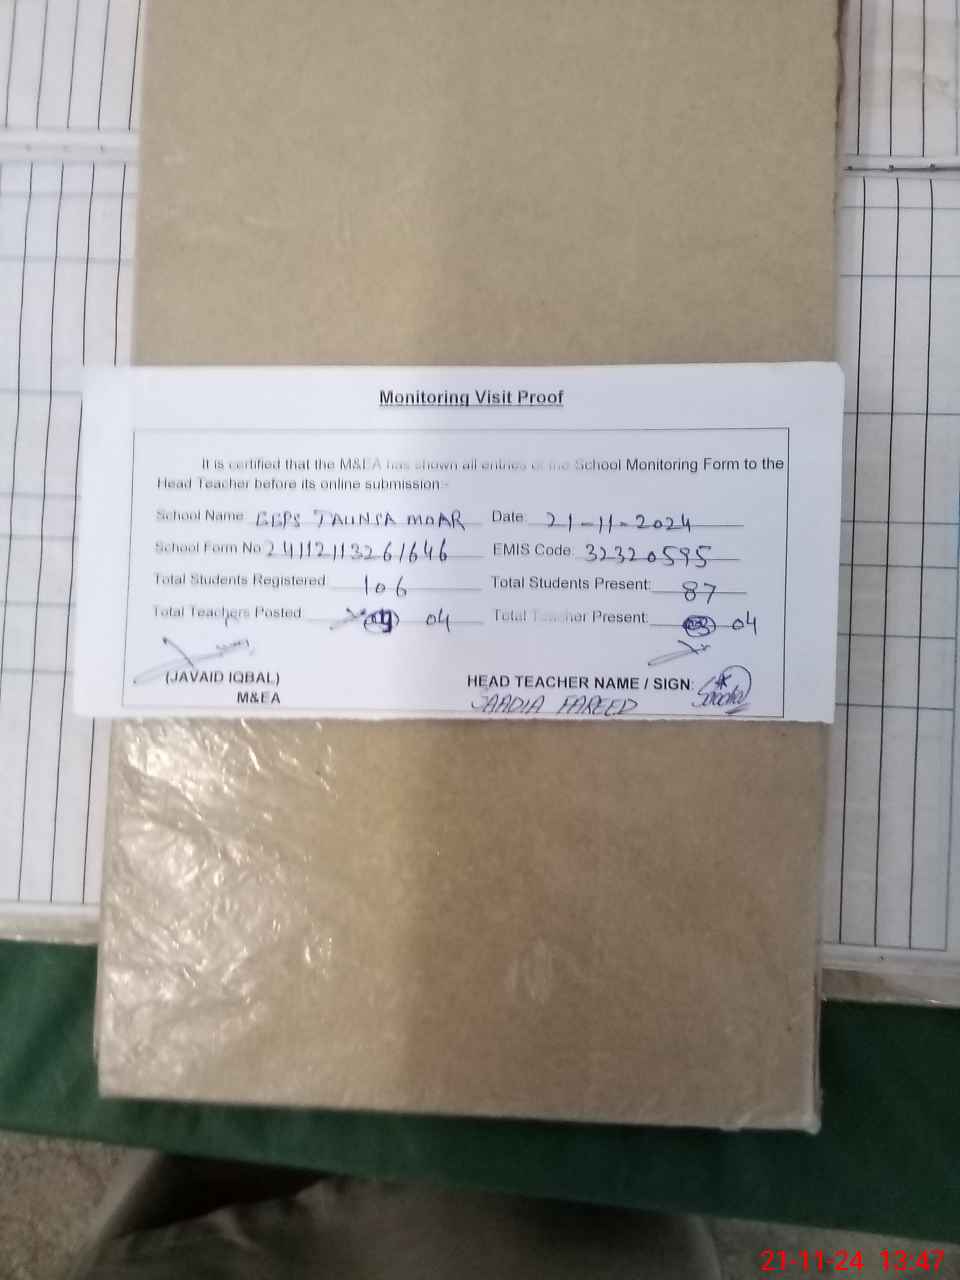 Monitoring Visit Proof
It is certified that the M&EA has shown all entries of the School Monitoring Form to the
Head Teacher before its online submission:-
School Name GGPS TAUNSA MOAR Date: 21-11-2024
School Form No 24112113261646 EMIS Code: 32320595
Total Students Registered 106 Total Students Present: 87
Total Teachers Posted 04 Total Teacher Present: 04
(JAVAID IQBAL) HEAD TEACHER NAME / SIGN:
M&EA SAADIA FAREED
21-11-24 13:47